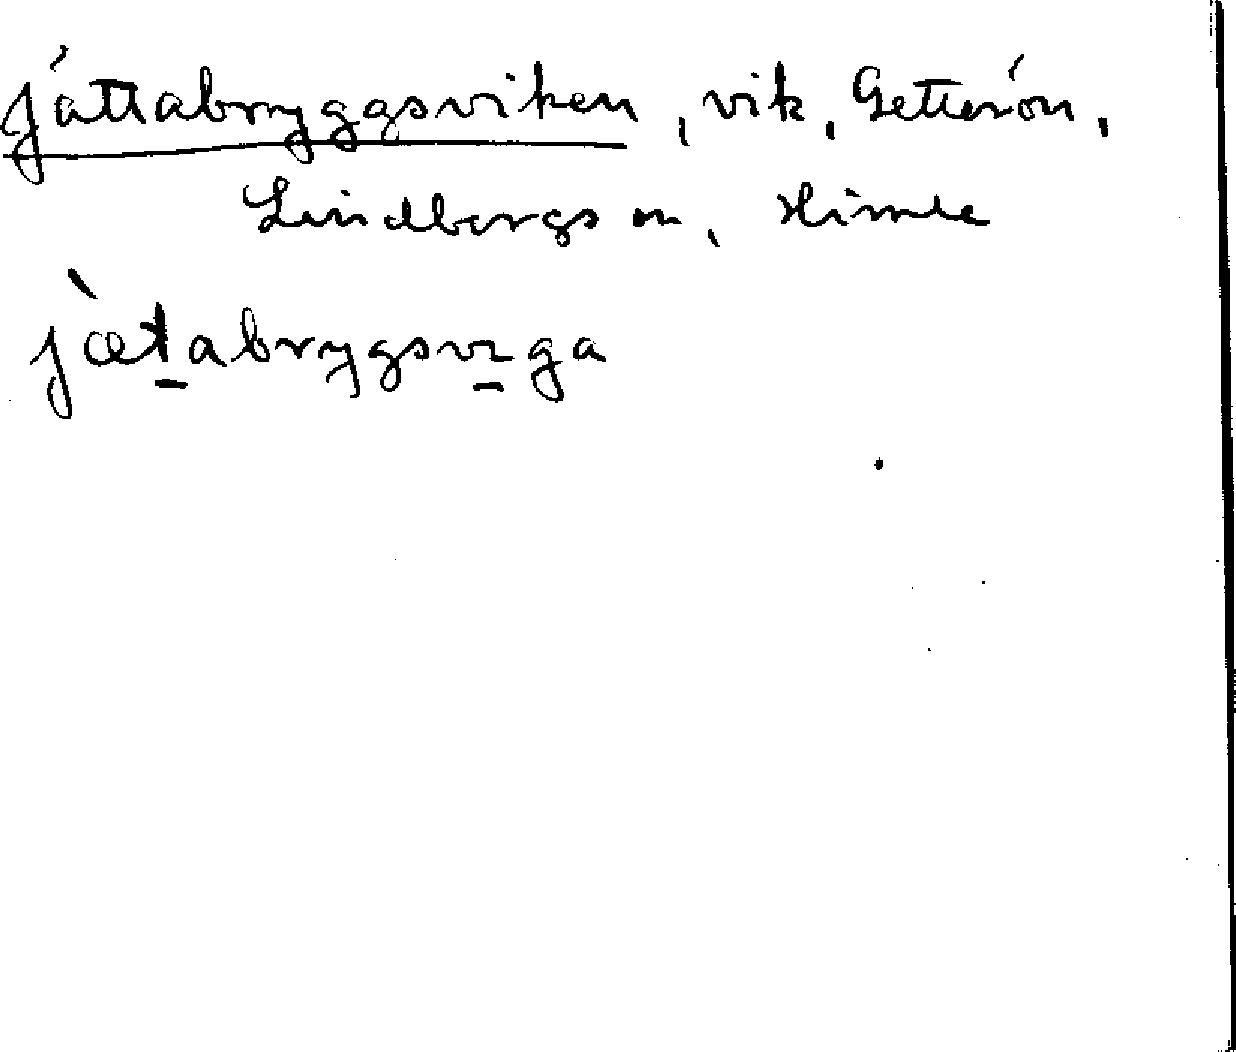 Jättabryggsviken, vik, Getterön,
Lindbergs sn, Himle
jæ̀tabrygsvıga